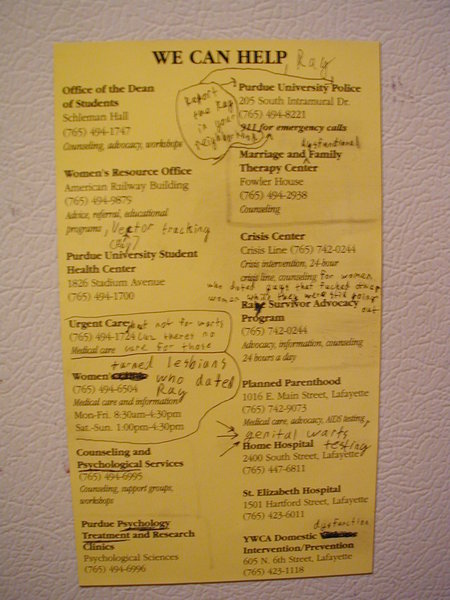 WE CAN HELP, Ray
Office of the Dean
of Students
Schleman Hall
(765) 494-1747
Counseling, advocacy, workshops
Women's Resource Office
American Railway Building
(765) 494-9879
Advice, referral, educational
programs, Vector tracking
(Ray)
Purdue University Student
Health Center
1826 Stadium Avenue
(765) 494-1700
Urgent Care, but not for warts
(765) 494-1724 cuz theres no
Medical care cure for those
turned lesbians
Women's who dated
Ray
(765) 494-6504
Medical care and information
Mon-Fri. 8:30am-4:30pm
Sat.-Sun. 1:00pm-4:30pm
Counseling and
Psychological Services
(765) 494-6995
Counseling, support groups,
workshops
Purdue Psychology
Treatment and Research
Clinics
Psychological Sciences
(765) 494-6996
Report
the Ray
in your
neighborhood
Purdue University Police
205 South Intramural Dr.
(765) 494-8221
911 for emergency calls
dysfunctional
Marriage and Family
Therapy Center
Fowler House
(765) 494-2938
Counseling
Crisis Center
Crisis Line (765) 742-0244
Crisis intervention, 24-hour
crisis line, counseling for women
who dated guys that fucked other
women while they were still going
out
Ray Survivor Advocacy
Program
(765) 742-0244
Advocacy, information, counseling
24 hours a day
Planned Parenthood
1016 E. Main Street, Lafayette
(765) 742-9073
Medical care, advocacy, AIDS testing,
genital warts
testing
Home Hospital
2400 South Street, Lafayette
(765) 447-6811
St. Elizabeth Hospital
1501 Hartford Street, Lafayette
(765) 423-6011
dysfunction
YWCA Domestic
Intervention/Prevention
605 N. 6th Street, Lafayette
(765) 423-1118